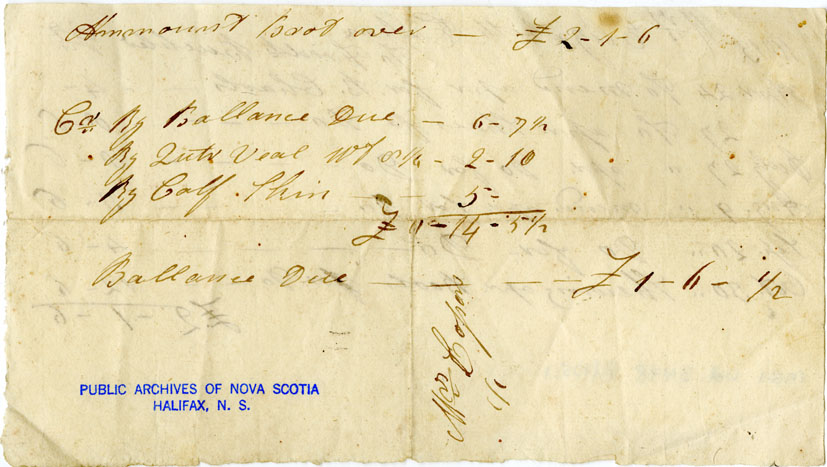 Ammount brot over — £ 2-1-6
Cr By Ballance Due — 6-7½
By Qutr Veal Wt 8½ - 2-10
By Calf Skin — 5-
£ 0-14-5½
Ballance Due — £ 1-6-½
PUBLIC ARCHIVES OF NOVA SCOTIA
HALIFAX, N. S.